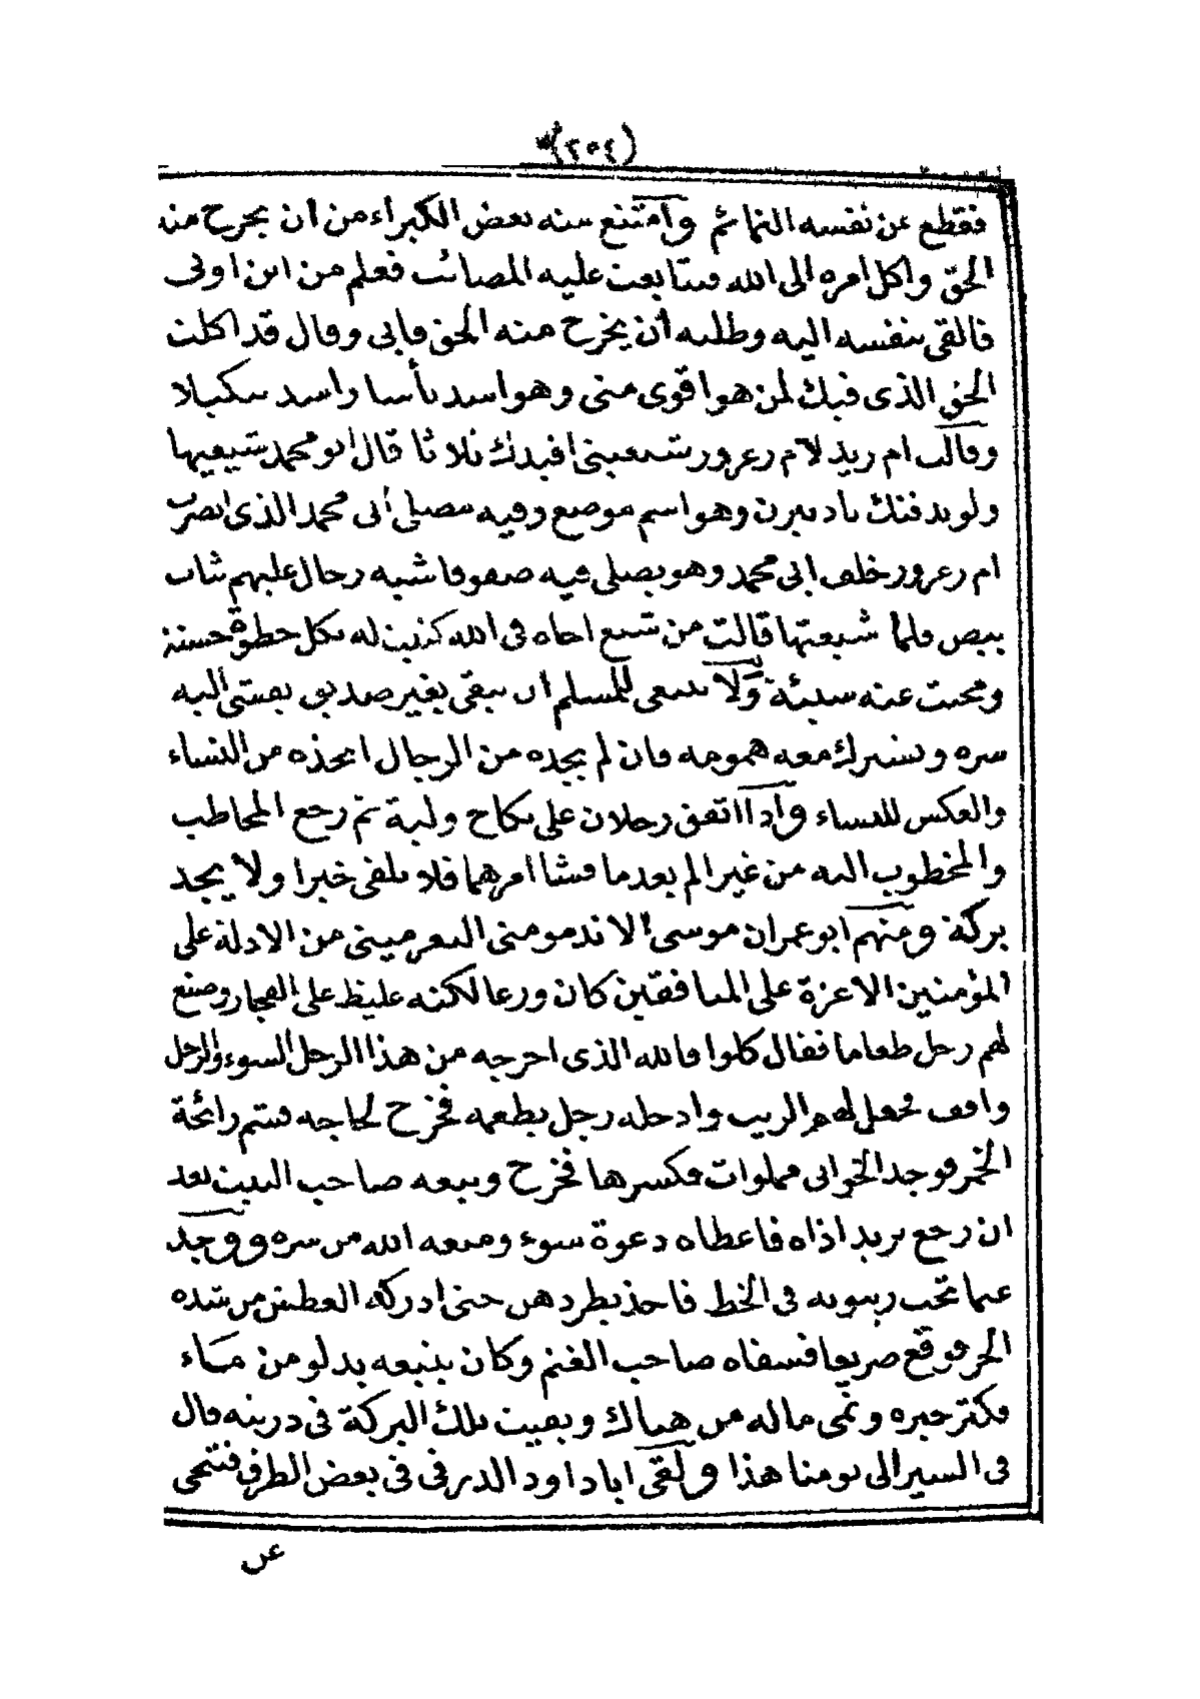 (٢٥٤)
فقطع عن نفسه التمائم وامتنع منه بعض الكبراء من ان يخرج منه
الحق واكل امره الى الله فتتابعت عليه المصائب فعلم من اين اوتى
فالقى بنفسه اليه وطلبه أن يخرج منه الحق فابى وقال قد اكلت
الحق الذى فيك لمن هو اقوى منى وهو اشد بأسا واشد تنكيلا
وقالت ام زيد لأم زعرور شيعينى افيدك ثلاثا قال ابو محمد شيعيها
ولو بدفنك وهو اسم موضع وفيه مصلى أبى محمد الذى ابصرت
ام زعرور خلف ابى محمد وهو يصلى فيه صفوفا شبه رجال عليهم ثياب
بيض فلما شيعتها قالت من شيع اخاه فى الله كتبت له بكل خطوة حسنة
ومحيت عنه سيئة ولا ينبغى للمسلم ان يبقى بغير صديق يفشى اليه
سره ويشترك معه همومه فان لم يجده من الرجال اتخذه من النساء
والعكس للنساء واذا اتفق رجلان على نكاح ولية ثم رجع المخاطب
والمخطوب اليه من غير الم بعد ما فشا أمرهما فلا يلقى خيرا ولا يجد
بركة ومنهم ابو عمران موسى الاندمومنى من الادلة على
المؤمنين الاعزة على المنافقين كان ورعا لكنه غليظ على الفجار وصنع
لهم رجل طعاما فقال كلوا فالله الذى اخرجه من هذا الرجل السوء والرجل
واقف فجعل لهم الزيت وادخله رجل يطعمه فخرج لحاجه فشم رائحة
الخمر فوجد الخوابى مملوات فكسرها فخرج وتبعه صاحب البيت بعد
ان رجع يريد اذاه فاعطاه دعوة سوء ومنعه الله من سره ووجد
غنما تحت زيتونه فى الخط فاخذ يطردهن حتى ادركه العطش من شده
الحر فوقع صريعا فسقاه صاحب الغنم وكان يتبعه بدلو من ماء
فكثر خيره ونمى ماله من هناك وبقيت تلك البركة فى ذريته قال
فى السير الى يومنا هذا ولقى اباداود الدرفى فى بعض الطرق فتنحى
عن